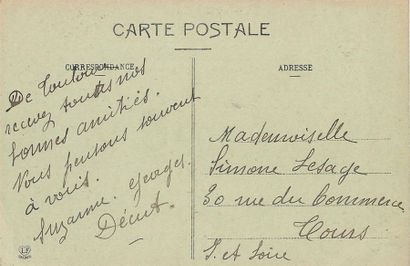 CARTE POSTALE
CORRESPONDANCE
De Toulouse
recevez toutes nos
bonnes amitiés.
Nous pensons souvent
à vous.
Suzanne. Georges.
ADRESSE
Mademoiselle
Simone Lesage
30 rue du Commerce
Tours
I. et Loire